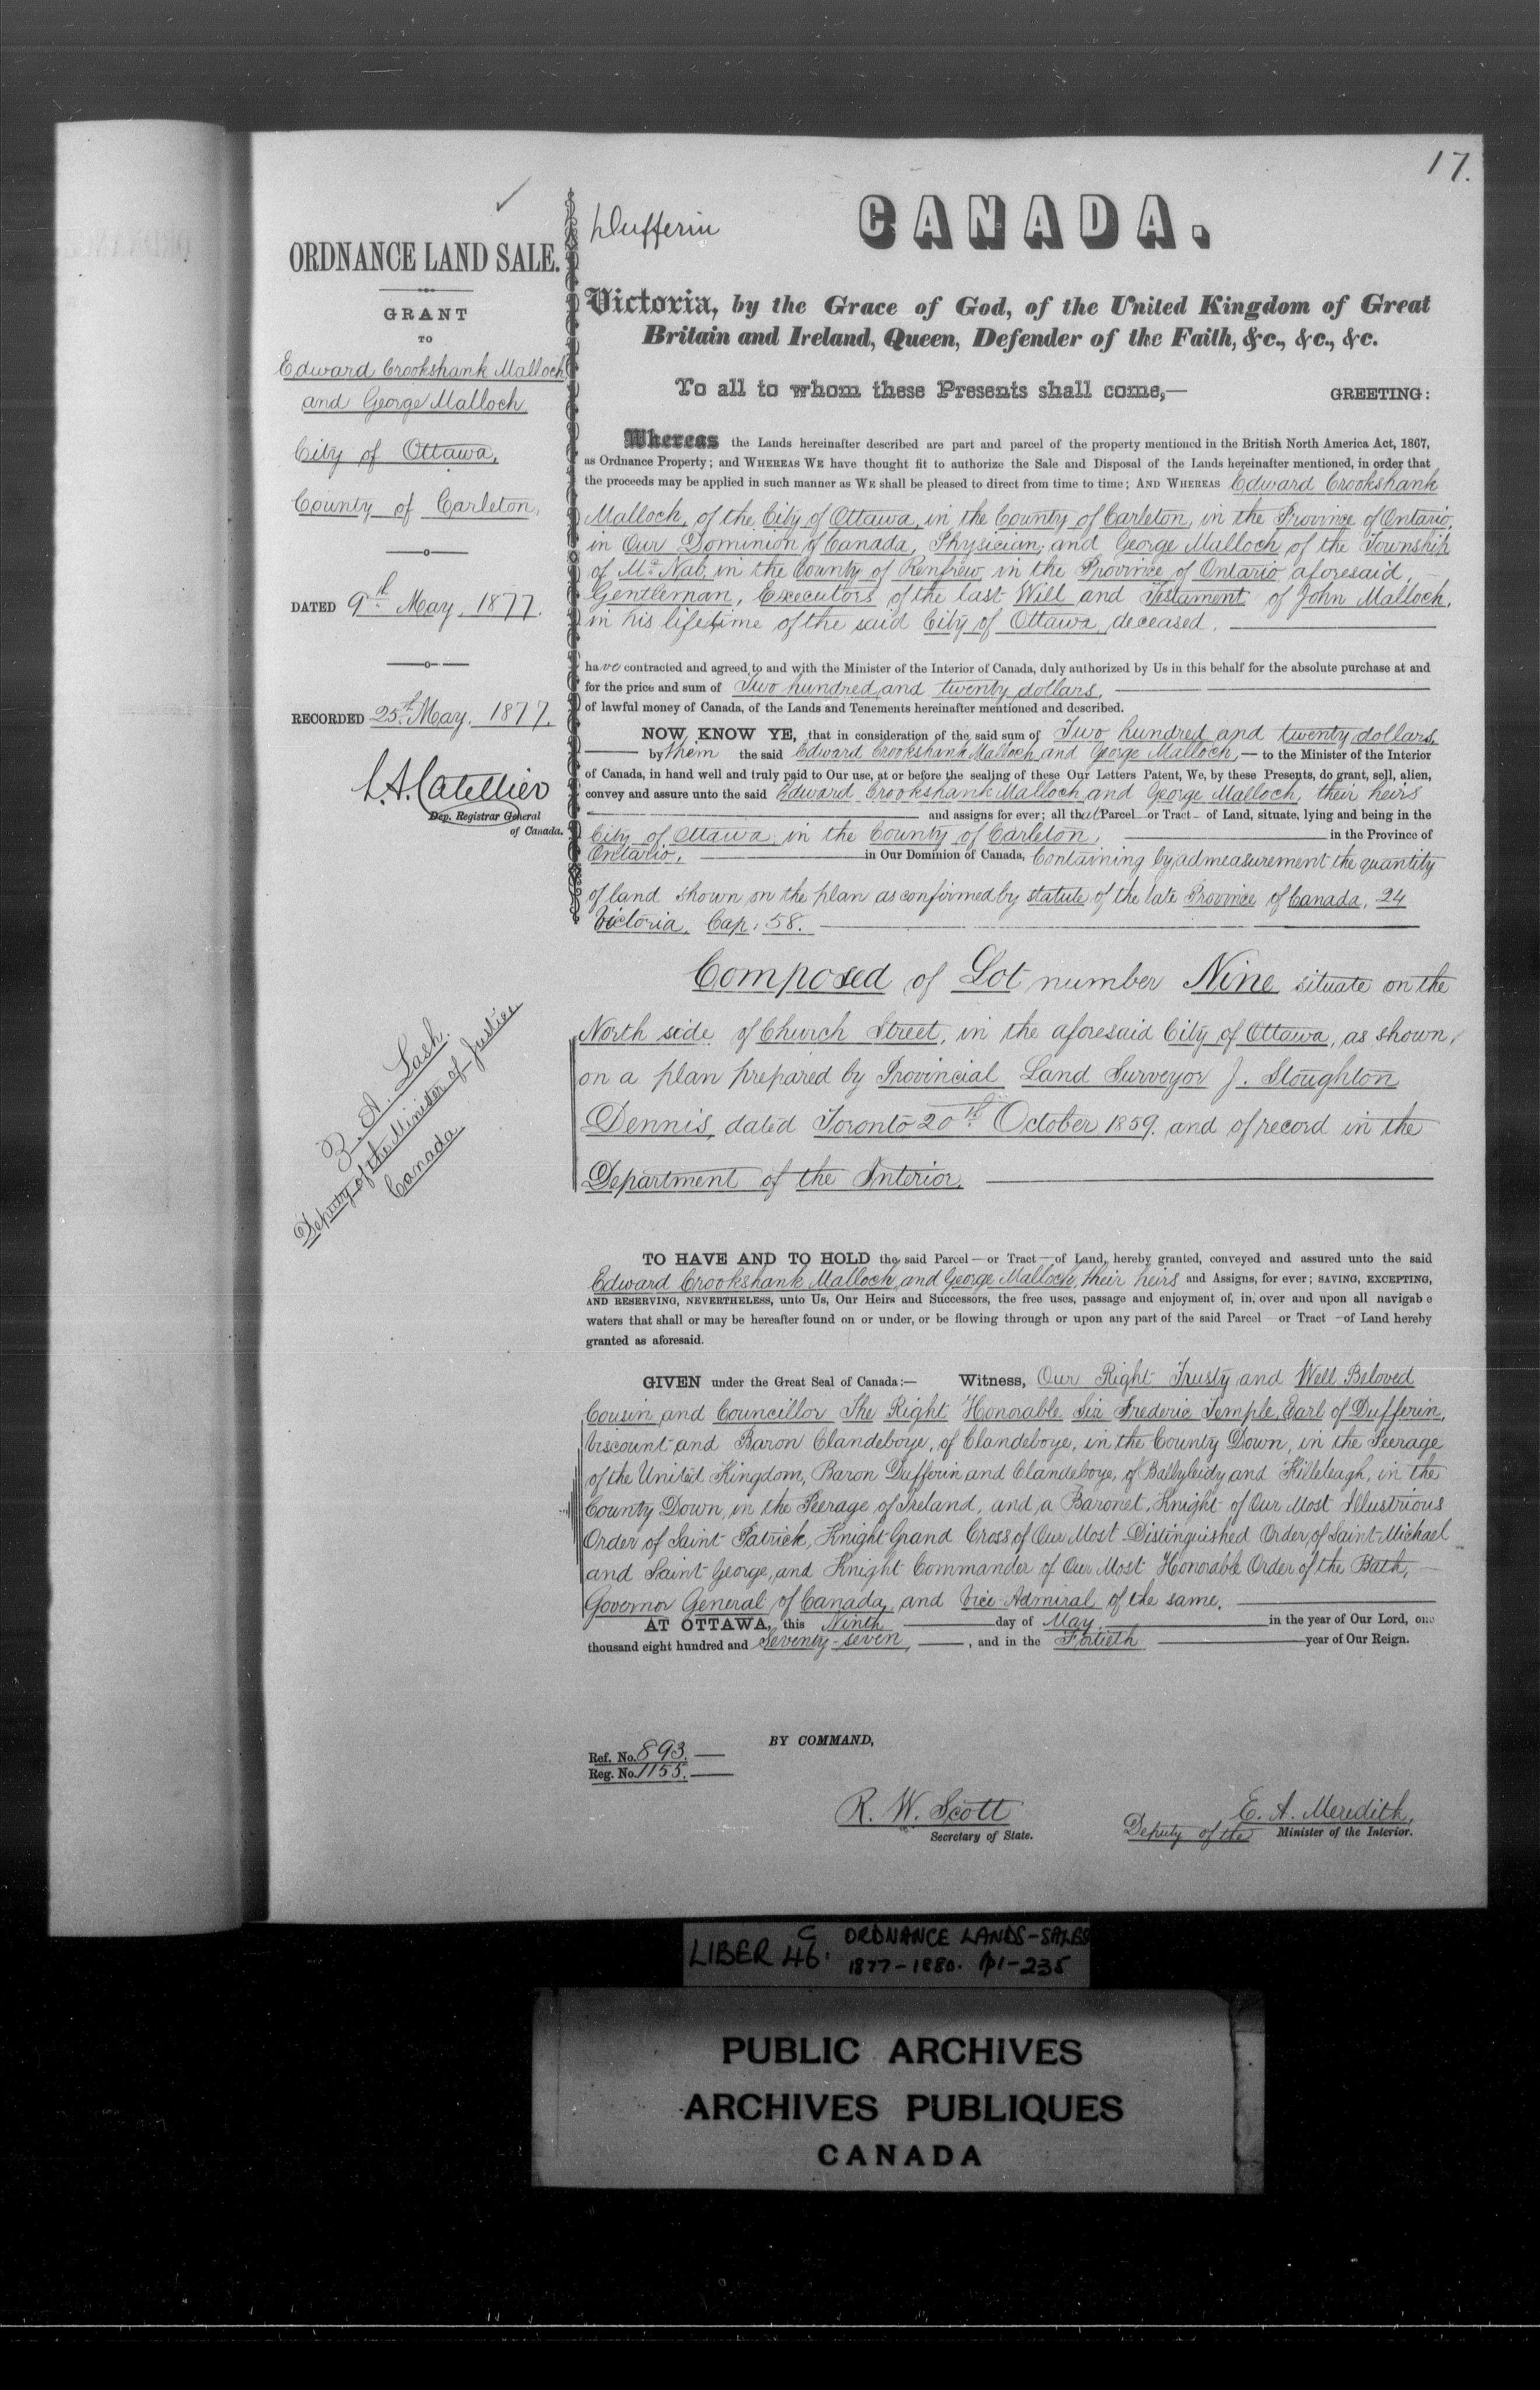 17.
ORDNANCE LAND SALE.
GRANT
TO
Edward Crookshank Malloch
and George Malloch
City of Ottawa,
County of Carleton,
DATED 9th May, 1877.
RECORDED 25th May, 1877.
L.A. Catellier
Dep. Registrar General
of Canada.
Z. A. Lash.
Deputy of the Minister of Justice
Canada
Dufferin
CANADA.
Victoria, by the Grace of God, of the United Kingdom of Great
Britain and Ireland, Queen, Defender of the Faith, &c., &c., &c.
To all to whom these Presents shall come,— GREETING:
Whereas the Lands hereinafter described are part and parcel of the property mentioned in the British North America Act, 1867,
as Ordnance Property; and WHEREAS WE have thought fit to authorize the Sale and Disposal of the Lands hereinafter mentioned, in order that
the proceeds may be applied in such manner as WE shall be pleased to direct from time to time; AND WHEREAS Edward Crookshank
Malloch, of the City of Ottawa, in the County of Carleton, in the Province of Ontario,
in Our Dominion of Canada, Physician, and George Malloch of the Township
of McNab, in the County of Renfrew, in the Province of Ontario aforesaid,
Gentleman, Executors of the last Will and Testament of John Malloch,
in his lifetime of the said City of Ottawa, deceased.
have contracted and agreed to and with the Minister of the Interior of Canada, duly authorized by Us in this behalf for the absolute purchase at and
for the price and sum of Two hundred and twenty dollars,
of lawful money of Canada, of the Lands and Tenements hereinafter mentioned and described.
NOW KNOW YE, that in consideration of the said sum of Two hundred and twenty dollars
by them the said Edward Crookshank Malloch and George Malloch,— to the Minister of the Interior
of Canada, in hand well and truly paid to Our use, at or before the sealing of these Our Letters Patent, We, by these Presents, do grant, sell, alien,
convey and assure unto the said Edward Crookshank Malloch and George Malloch, their heirs
and assigns for ever; all that Parcel or Tract of Land, situate, lying and being in the
City of Ottawa, in the County of Carleton, in the Province of
Ontario, in Our Dominion of Canada, Containing by admeasurement the quantity
of land shown on the plan as confirmed by statute of the late Province of Canada, 24
Victoria, Cap, 58.
Composed of Lot number Nine situate on the
North side of Church Street, in the aforesaid City of Ottawa, as shown,
on a plan prepared by Provincial Land Surveyor J. Stoughton
Dennis, dated Toronto 20th October 1859. and of record in the
Department of the Interior.
TO HAVE AND TO HOLD the said Parcel — or Tract — of Land, hereby granted, conveyed and assured unto the said
Edward Crookshank Malloch, and George Malloch, their heirs and Assigns, for ever; SAVING, EXCEPTING,
AND RESERVING, NEVERTHELESS, unto Us, Our Heirs and Successors, the free uses, passage and enjoyment of, in, over and upon all navigab e
waters that shall or may be hereafter found on or under, or be flowing through or upon any part of the said Parcel or Tract — of Land hereby
granted as aforesaid.
GIVEN under the Great Seal of Canada:— Witness, Our Right Trusty and Well Beloved
Cousin and Councillor The Right Honorable Sir Frederic Temple, Earl of Dufferin,
Viscount and Baron Clandeboye, of Clandeboye, in the County Down, in the Peerage
of the United Kingdom, Baron Dufferin and Clandeboye, of Ballyleidy and Killeleagh, in the
County Down, in the Peerage of Ireland, and a Baronet, Knight of Our Most Illustrious
Order of Saint Patrick, Knight Grand Cross of Our Most Distinguished Order of Saint Michael
and Saint George, and Knight Commander of Our Most Honorable Order of the Bath,
Governor General of Canada, and Vice Admiral of the same.
AT OTTAWA, this Ninth day of May in the year of Our Lord, one
thousand eight hundred and Seventy-seven, , and in the Fortieth year of Our Reign.
BY COMMAND,
Ref. No. 893.
Reg. No. 1155.
R. W. Scott
Secretary of State.
E. A. Meredith,
Deputy of the Minister of the Interior.
LIBER 46. C ORDNANCE LANDS-SALES
1877-1880. pp1-235
PUBLIC ARCHIVES
ARCHIVES PUBLIQUES
CANADA